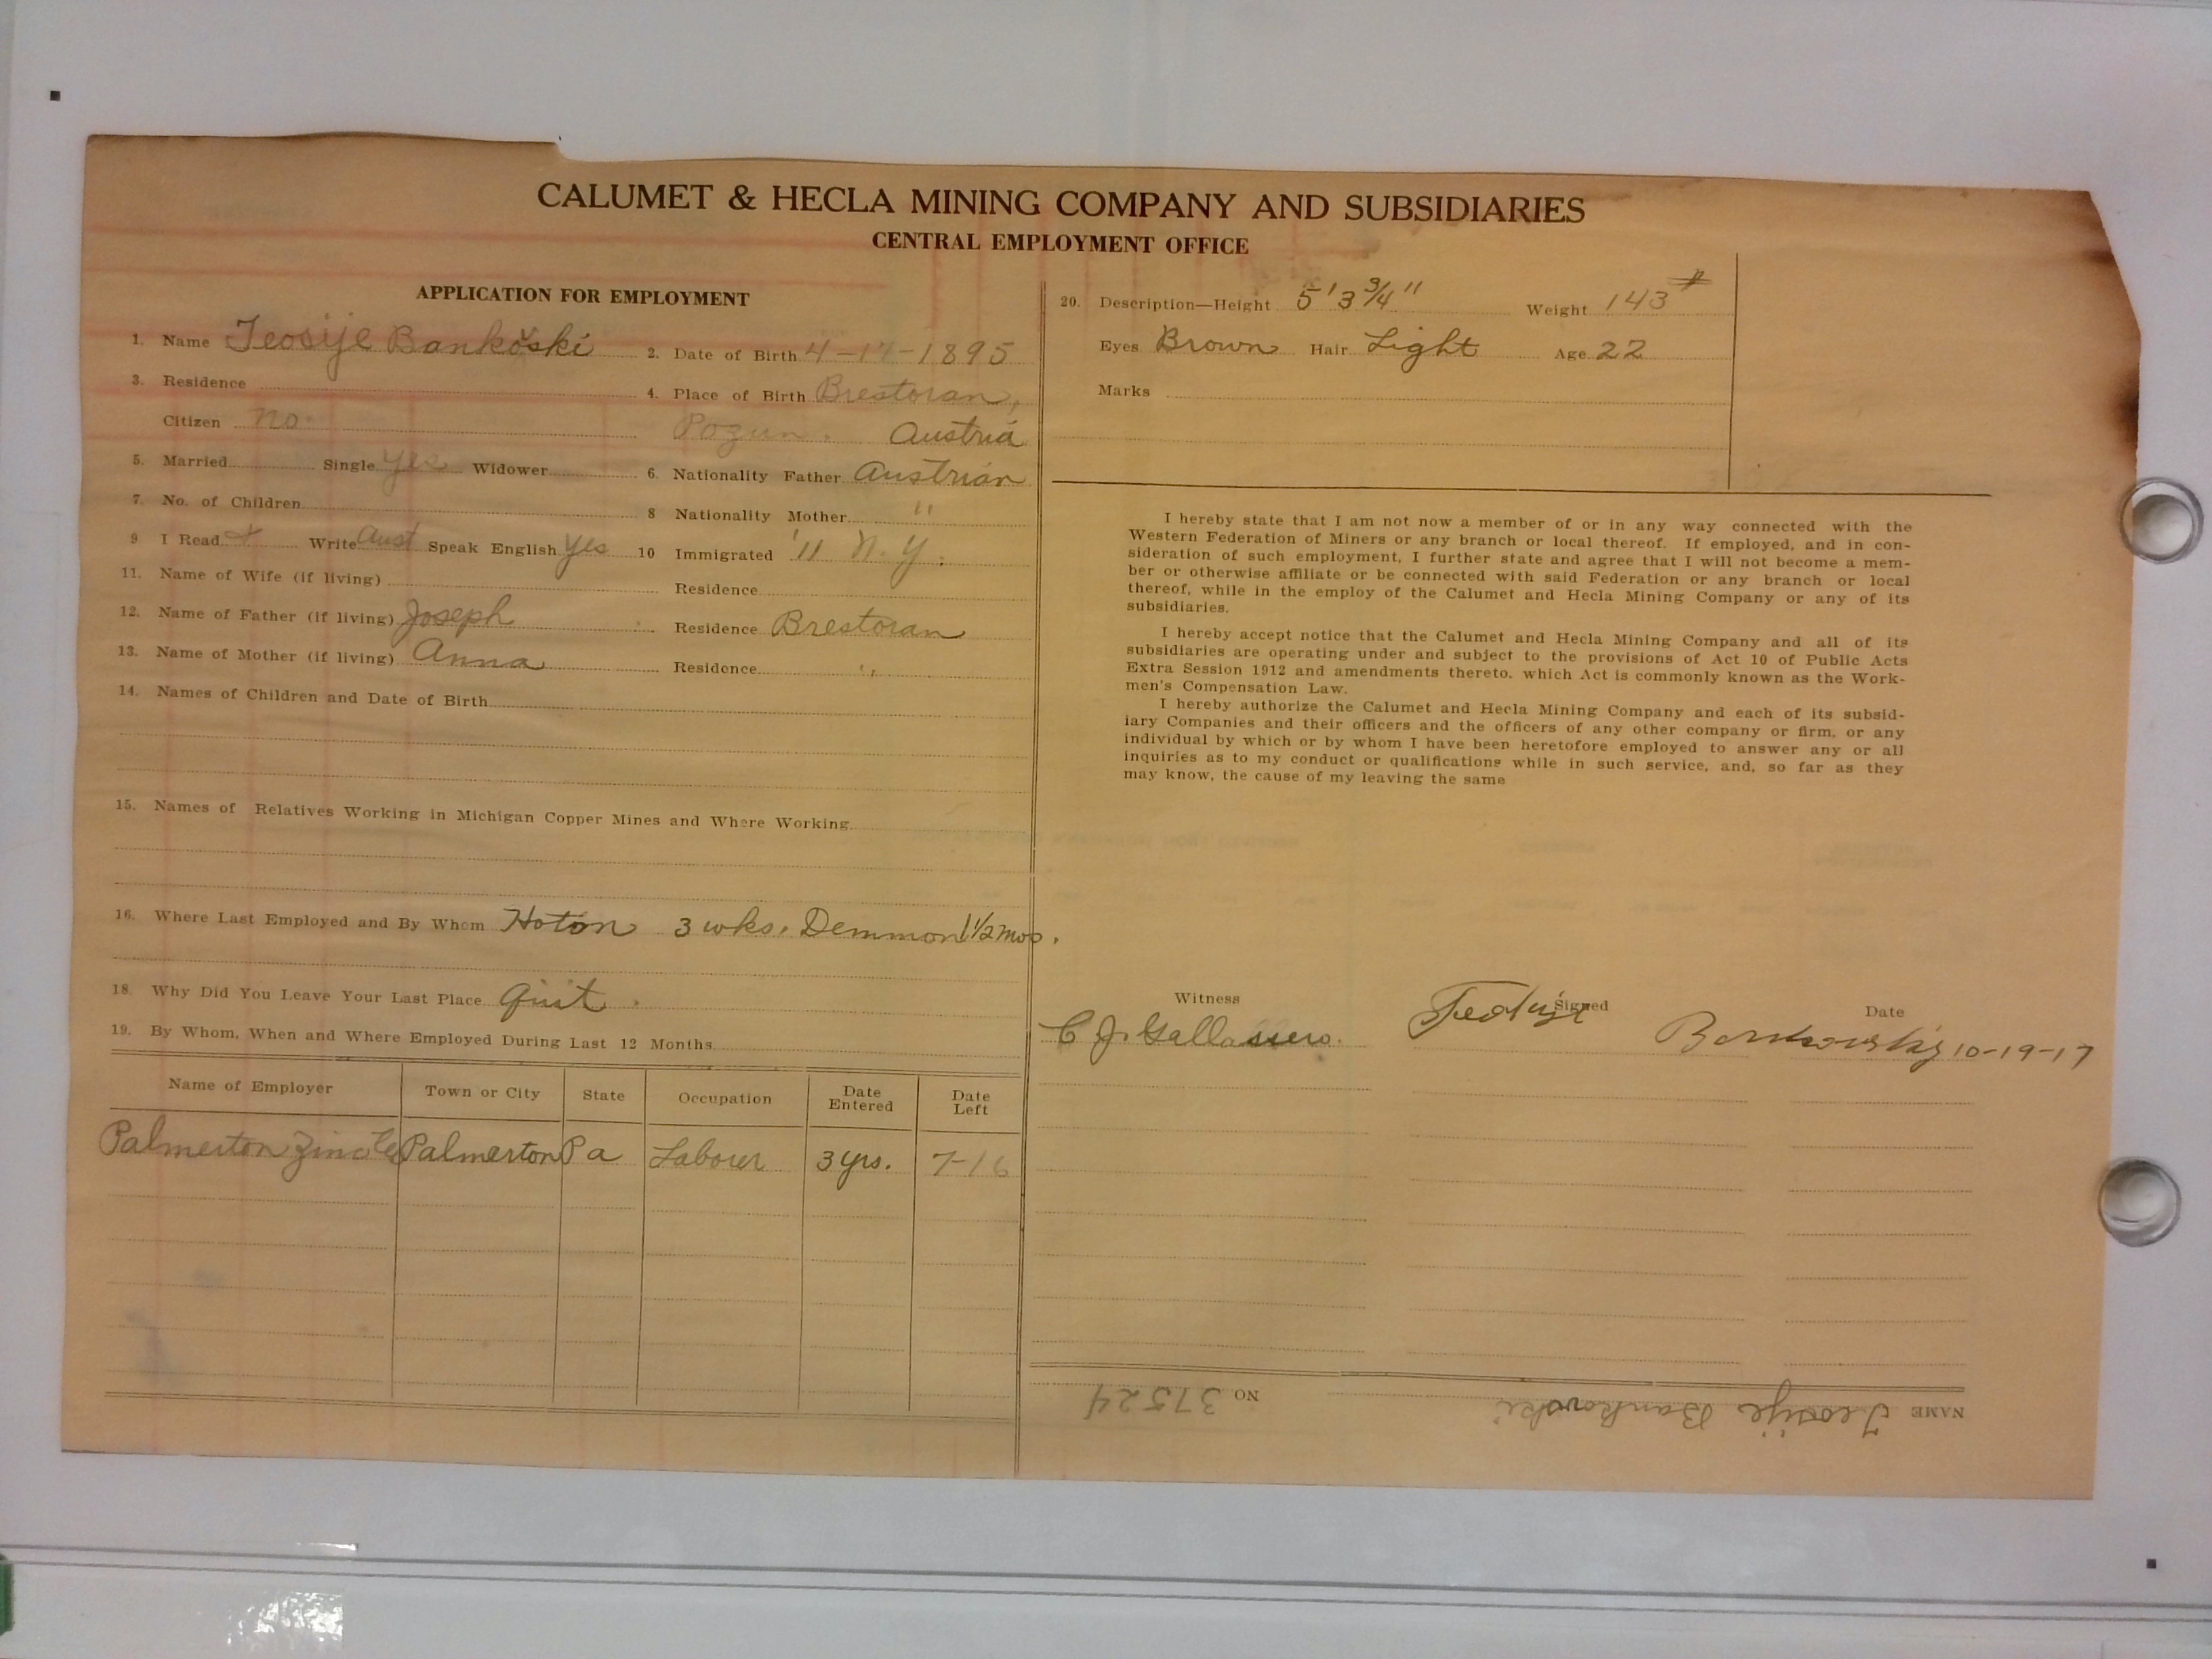 CALUMET & HECLA MINING COMPANY AND SUBSIDIARIES
CENTRAL EMPLOYMENT OFFICE
APPLICATION FOR EMPLOYMENT
1. Name Teosije Bankoski 2. Date of Birth 4-14-1895
3. Residence 4. Place of Birth Brestoran,
Citizen no. Pozun. Austria
5. Married Single yes Widower 6. Nationality Father Austrian
7. No. of Children 8 Nationality Mother "
9 I Read + Write Aust Speak English yes 10 Immigrated '11 N.Y.
11. Name of Wife (if living) Residence
12. Name of Father (if living) Joseph Residence Brestoran
13. Name of Mother (if living) Anna Residence "
14. Names of Children and Date of Birth
15. Names of Relatives Working in Michigan Copper Mines and Where Working
16. Where Last Employed and By Whom Hoton 3 wks. Demmon 1 1/2 mos.
18. Why Did You Leave Your Last Place Quit.
19. By Whom, When and Where Employed During Last 12 Months
Name of Employer Town or City State Occupation Date Entered Date Left
Palmerton Zinc Co Palmerton Pa Laborer 3 yrs. 7-16
20. Description—Height 5' 3 3/4" Weight 143#
Eyes Brown Hair Light Age 22
Marks
I hereby state that I am not now a member of or in any way connected with the
Western Federation of Miners or any branch or local thereof. If employed, and in con-
sideration of such employment, I further state and agree that I will not become a mem-
ber or otherwise affiliate or be connected with said Federation or any branch or local
thereof, while in the employ of the Calumet and Hecla Mining Company or any of its
subsidiaries.
I hereby accept notice that the Calumet and Hecla Mining Company and all of its
subsidiaries are operating under and subject to the provisions of Act 10 of Public Acts
Extra Session 1912 and amendments thereto, which Act is commonly known as the Work-
men's Compensation Law.
I hereby authorize the Calumet and Hecla Mining Company and each of its subsid-
iary Companies and their officers and the officers of any other company or firm, or any
individual by which or by whom I have been heretofore employed to answer any or all
inquiries as to my conduct or qualifications while in such service, and, so far as they
may know, the cause of my leaving the same
Witness Signed Date
C. J. 10-19-17
NAME Teosije Bankovski NO 37524